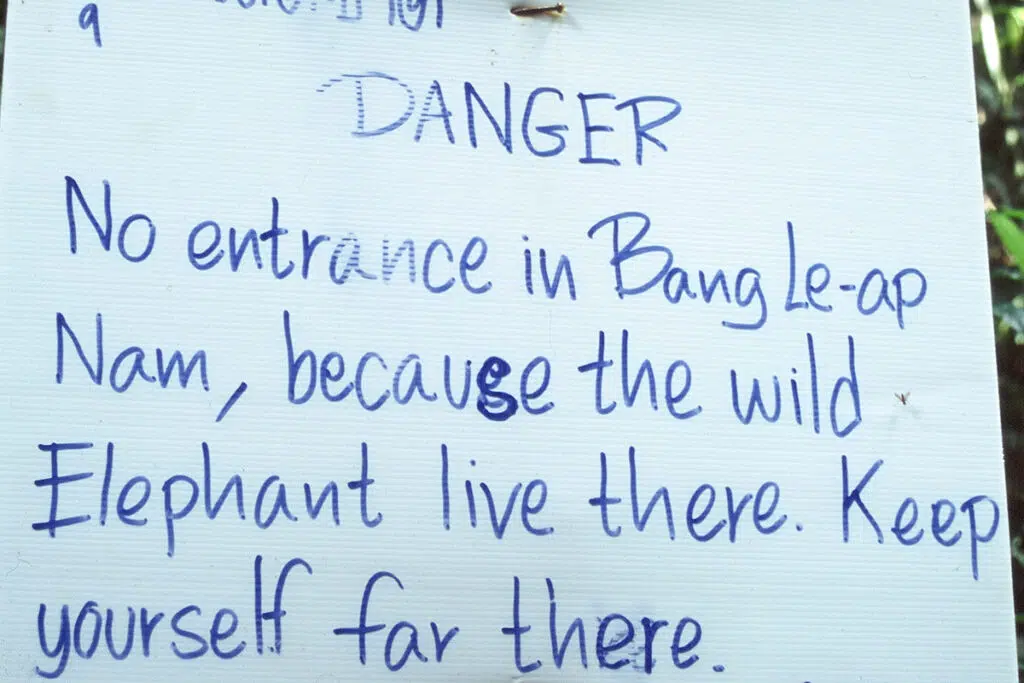 DANGER
No entrance in Bang Le-ap
Nam, because the wild
Elephant live there. Keep
yourself far there.